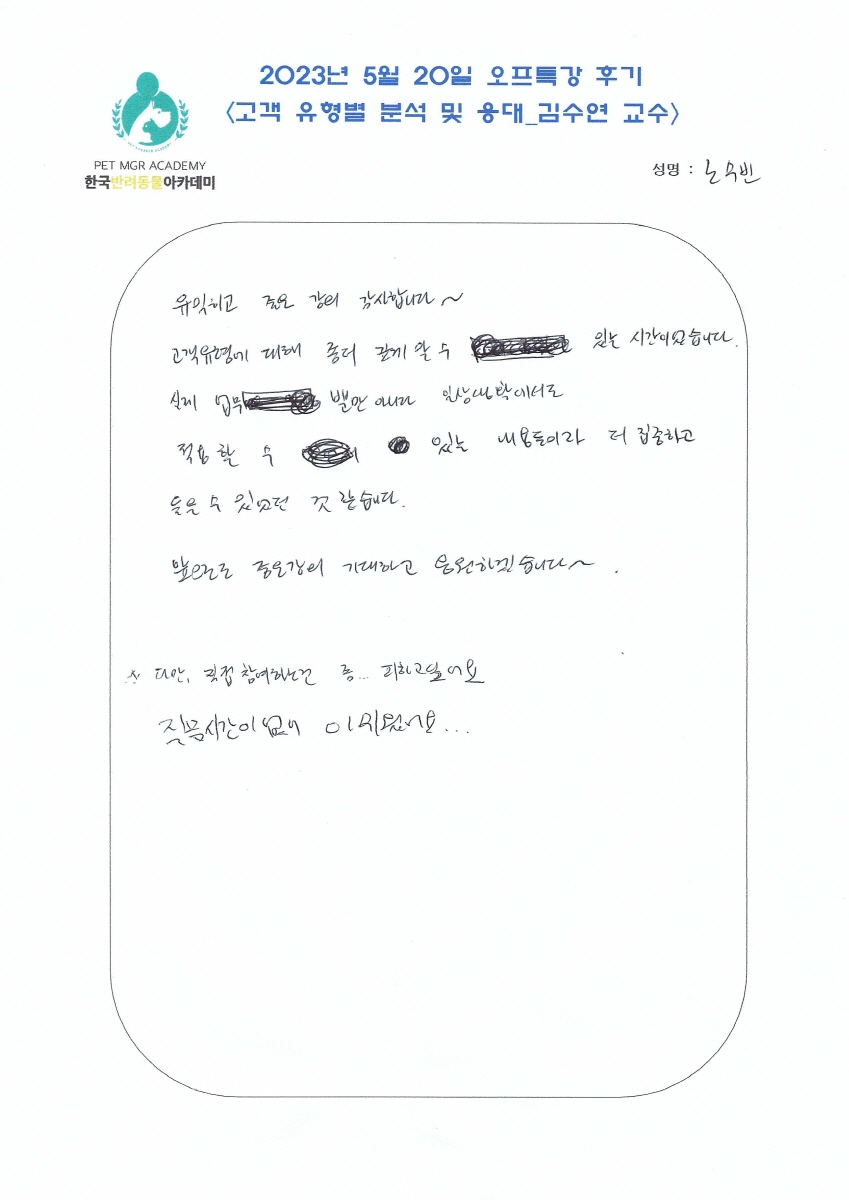 2023년 5월 20일 오프특강 후기
<고객 유형별 분석 및 응대_김수연 교수>
PET MGR ACADEMY
한국반려동물아카데미
성명 : 노수빈
유익하고 좋은 강의 감사합니다~
고객유형에 대해 좀더 깊게 알 수 있는 시간이었습니다.
실제 업무 뿐만 아니라 일상생활에서도
적용할 수 있는 내용들이라 더 집중하고
들을 수 있었던 것 같습니다.
앞으로도 좋은강의 기대하고 응원하겠습니다~ .
* 다만, 직접 참여하는건 좀... 피하고싶어요
질문시간이 없어 아쉬웠어요...